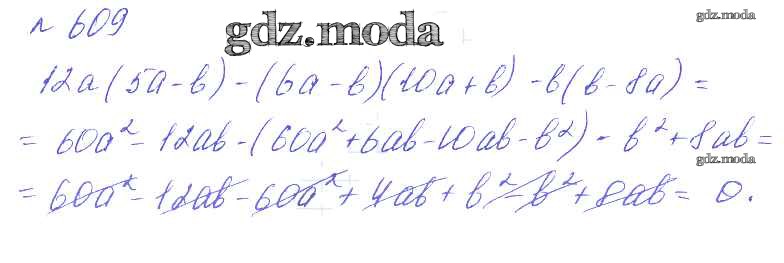 № 609
gdz.moda
gdz.moda
12a(5a-b)-(6a-b)(10a+b)-b(b-8a)=
= 60a²-12ab-(60a²+6ab-10ab-b²)-b²+8ab=
gdz.moda
= 60a²-12ab-60a²+4ab+b²-b²+8ab= 0.